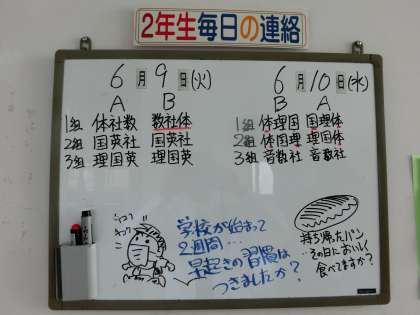 2年生毎日の連絡
6月9日(火)
A B
1組 体社数 数社体
2組 国英社 国英社
3組 理国英 理国英
6月10日(水)
B A
1組 体理国 国理体
2組 体国理 理国体
3組 音数社 音数社
学校が始まって
2週間…
早起きの習慣は
つきましたか?
持ち帰ったパン
その日においしく
食べてますか?